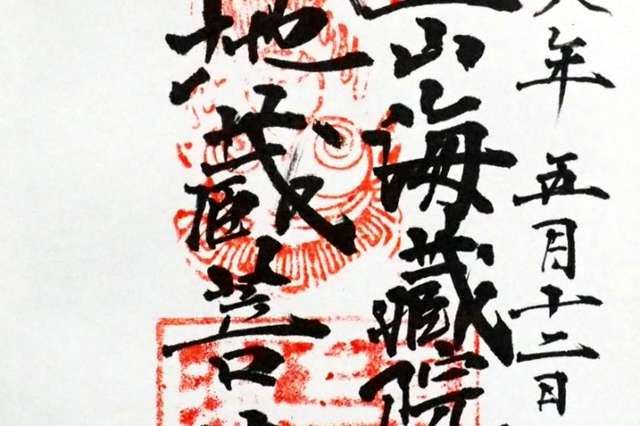 年五月十二日
山海蔵院
地蔵菩